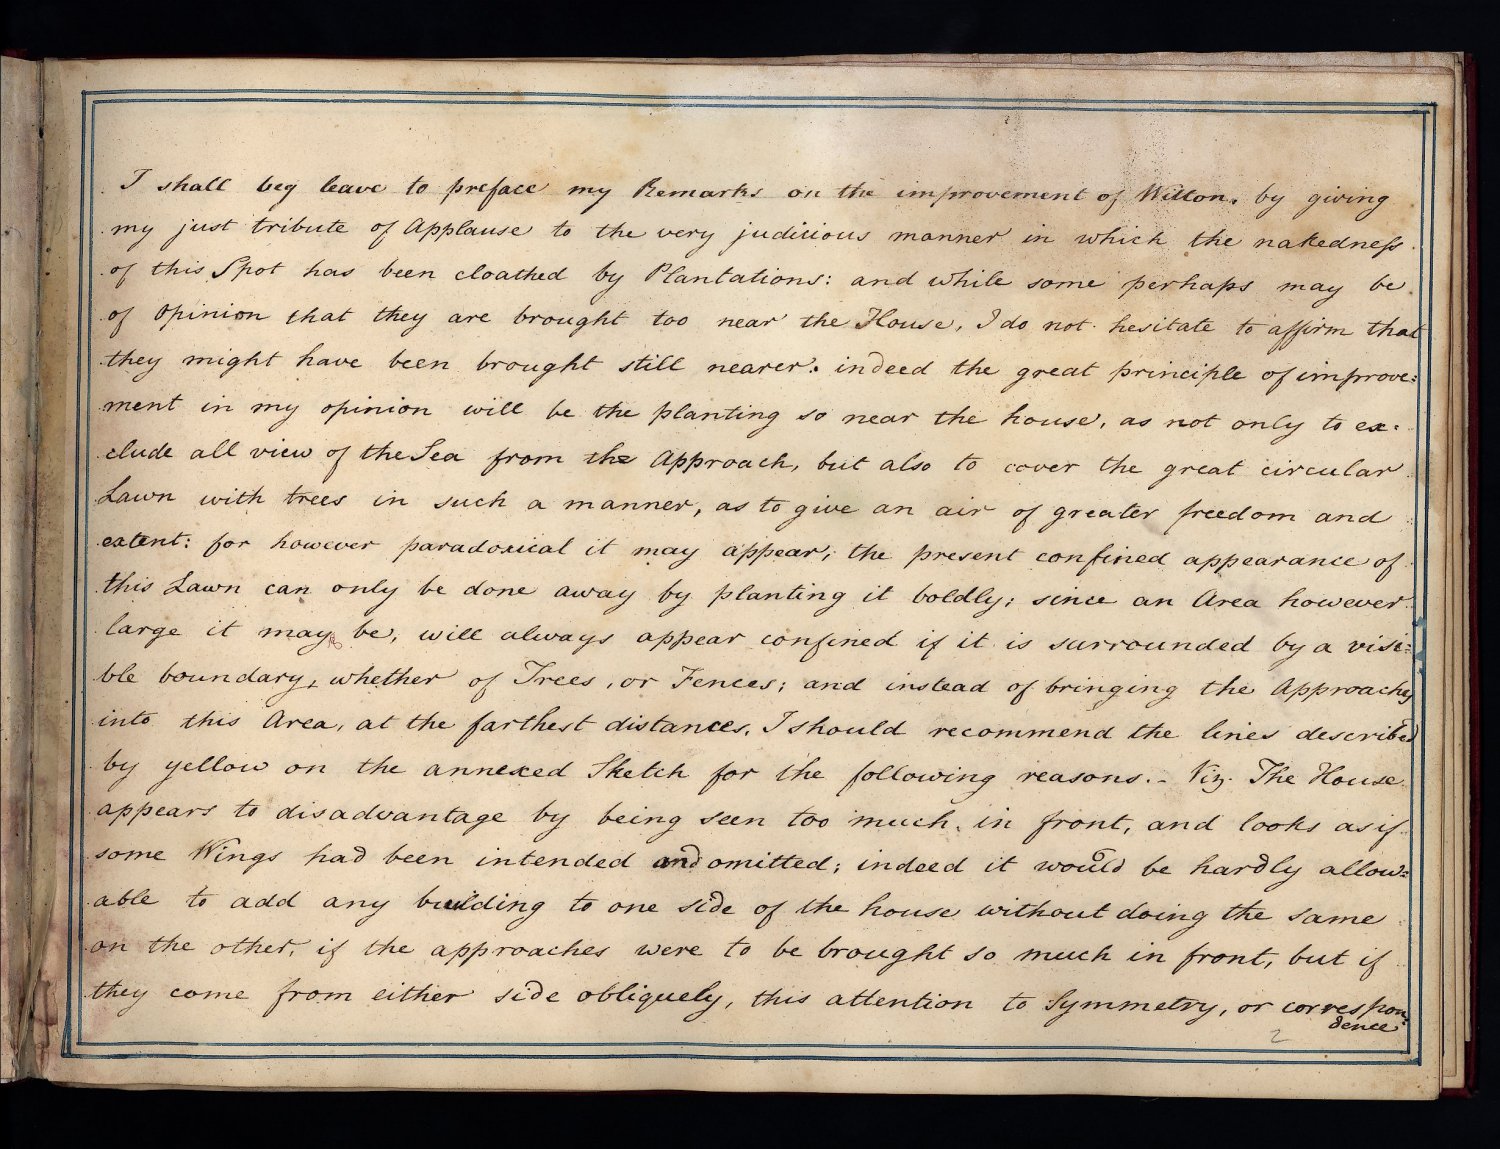 I shall beg leave to preface my Remarks on the improvement of Witton, by giving
my just tribute of Applause to the very judicious manner in which the nakedneſs
of this Spot has been cloathed by Plantations: and while some perhaps may be
of Opinion that they are brought too near the House, I do not hesitate to affirm that
they might have been brought still nearer. indeed the great principle of improve=
ment in my opinion will be the planting so near the house, as not only to ex=
clude all view of the Sea from the Approach, but also to cover the great circular
Lawn with trees in such a manner, as to give an air of greater freedom and
extent: for however paradoxical it may appear, the present confined appearance of
this Lawn can only be done away by planting it boldly; since an Area however
large it may be, will always appear confined if it is surrounded by a visi=
ble boundary, whether of Trees, or Fences; and instead of bringing the Approaches
into this Area, at the farthest distances, I should recommend the lines described
by yellow on the annexed Sketch for the following reasons. - Viz. The House
appears to disadvantage by being seen too much in front, and looks as if
some Wings had been intended and omitted; indeed it would be hardly allow=
able to add any building to one side of the house without doing the same
on the other, if the approaches were to be brought so much in front, but if
they come from either side obliquely, this attention to Symmetry, or correspon=
dence
2